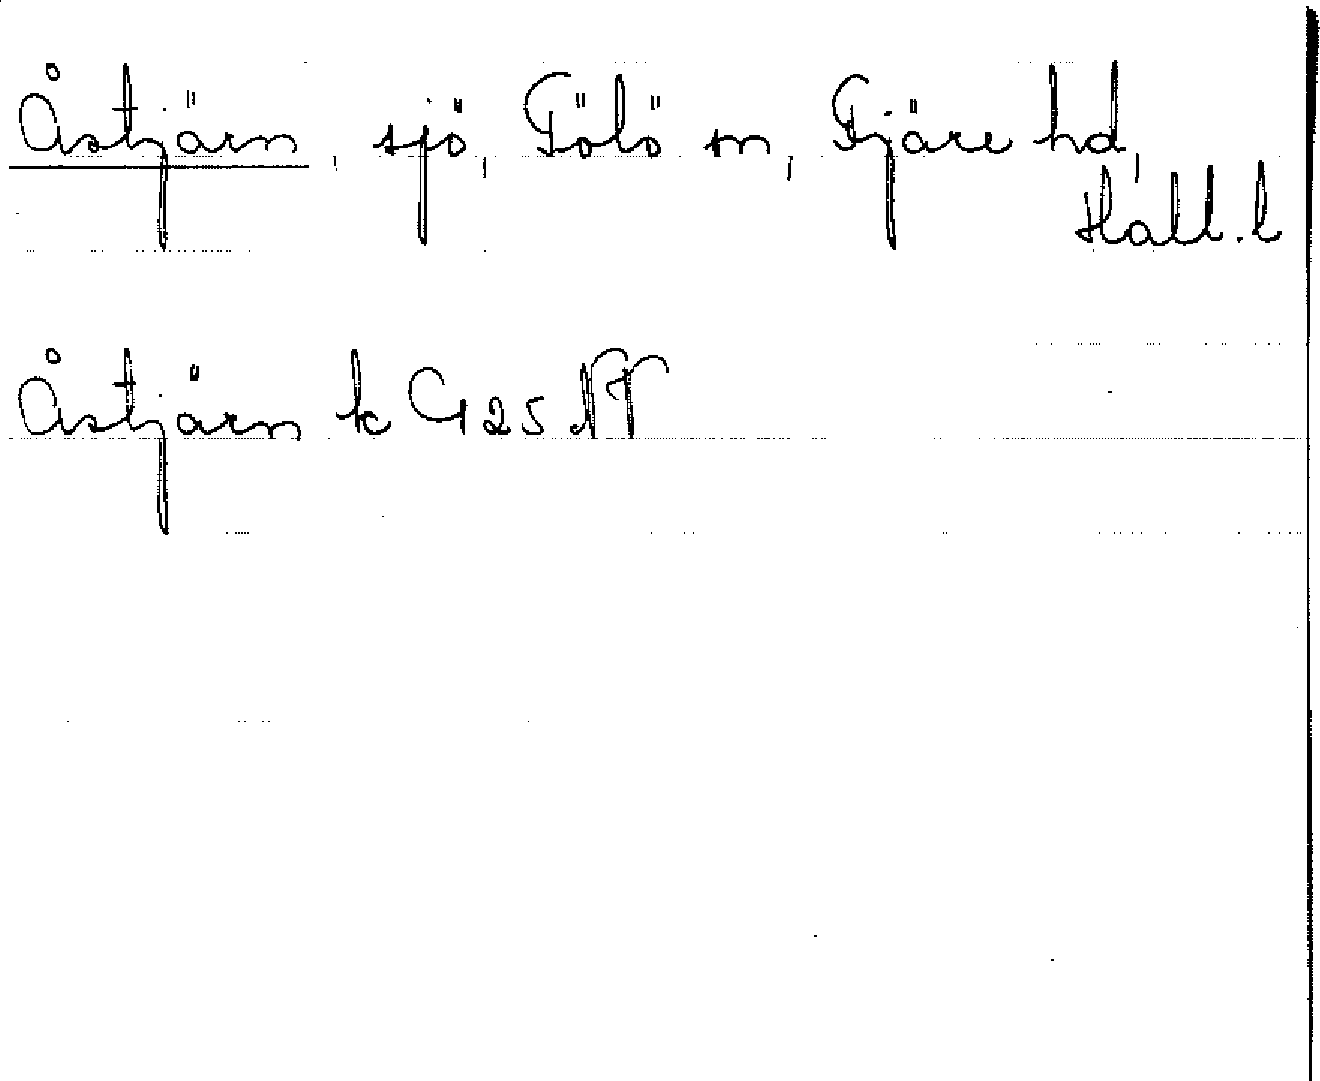 Åstjärn, sjö, Fölö sn, Fjäre hd,
Hall. l
Åstjärn k G 25 NV